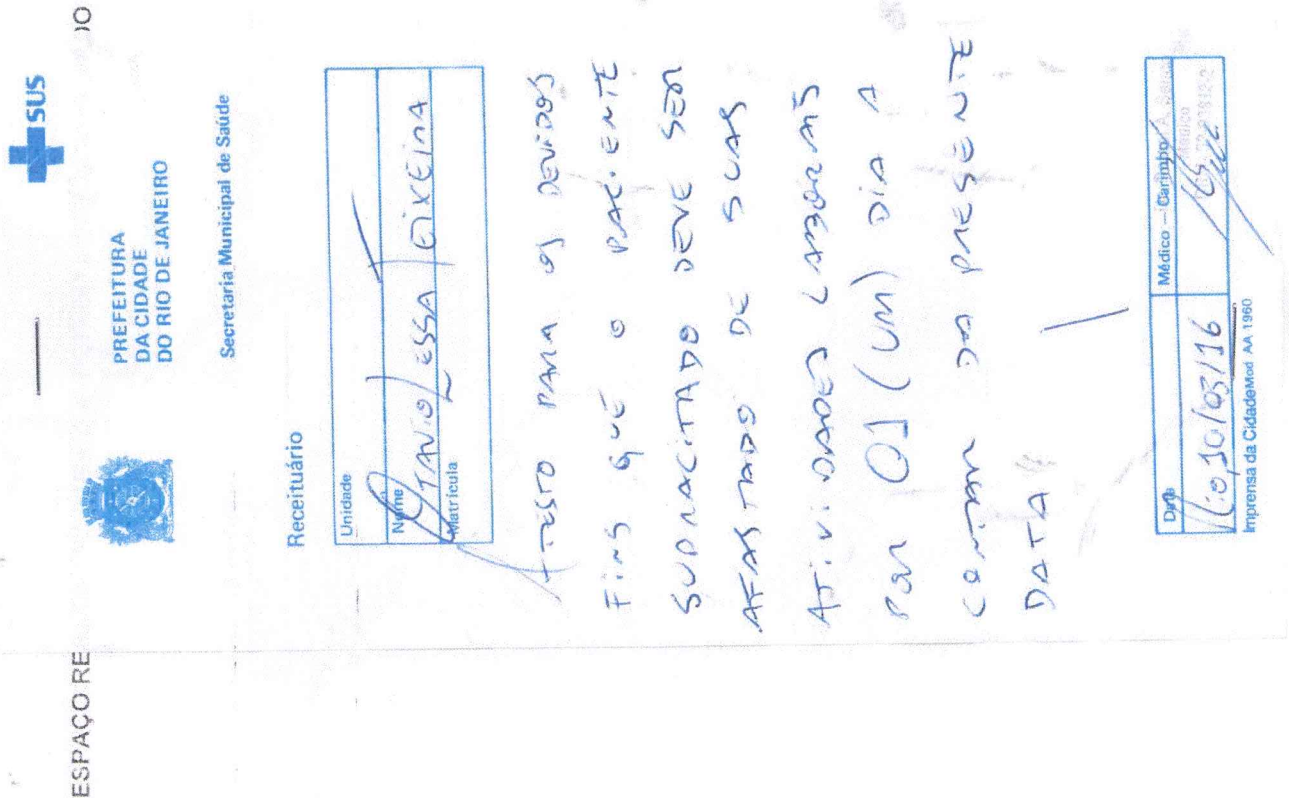 ESPAÇO RE
DO
SUS
PREFEITURA
DA CIDADE
DO RIO DE JANEIRO
Secretaria Municipal de Saúde
Receituário
Unidade
Nome
OTAVIO LESSA TEIXEIRA
Matrícula
ATESTO PARA OS DEVIDOS
FINS QUE O PACIENTE
SUPRACITADO DEVE SER
AFASTADO DE SUAS
ATIVIDADES LABORAIS
POR 01 (UM) DIA A
CONTAR DA PRESENTE
DATA
Data
Médico – Carimbo
Rio, 10/03/16
Imprensa da Cidade Mod AA 1960